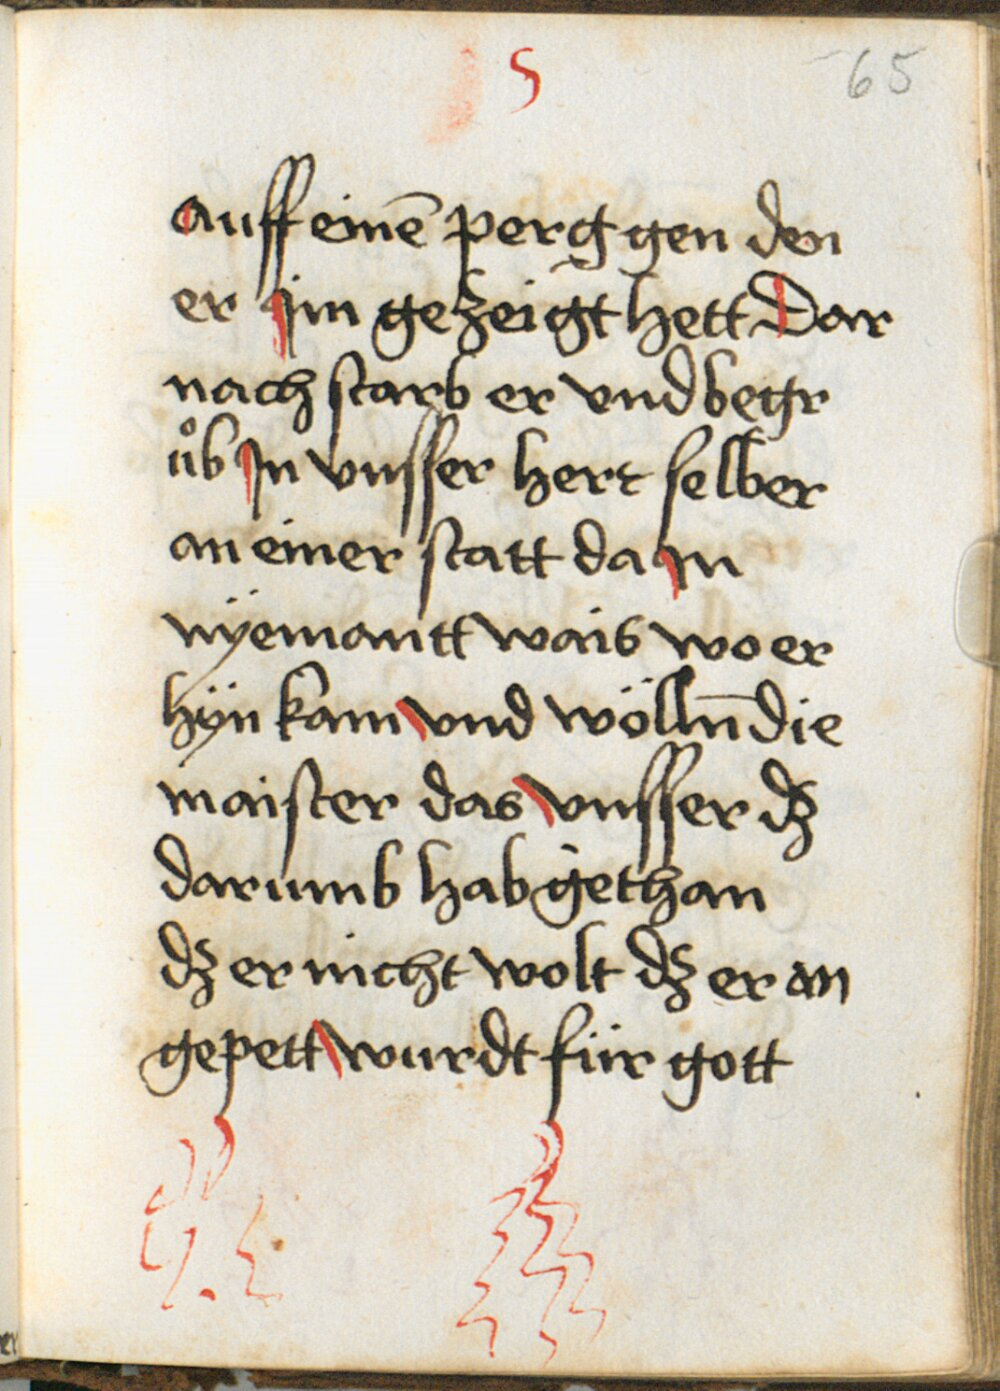 5
65
auff einē perg gen den
er Jm gezeigt hett Dar
nach starb er vnd begr
ůb Jn vnsser herr selber
an einer statt da Jn
nÿemantt wais wo er
hÿn kam vnd wölln̄ die
maister das vnsser dz
darumb hab gethan
dz er nicht wolt dz er an
gepett wurdt für gott